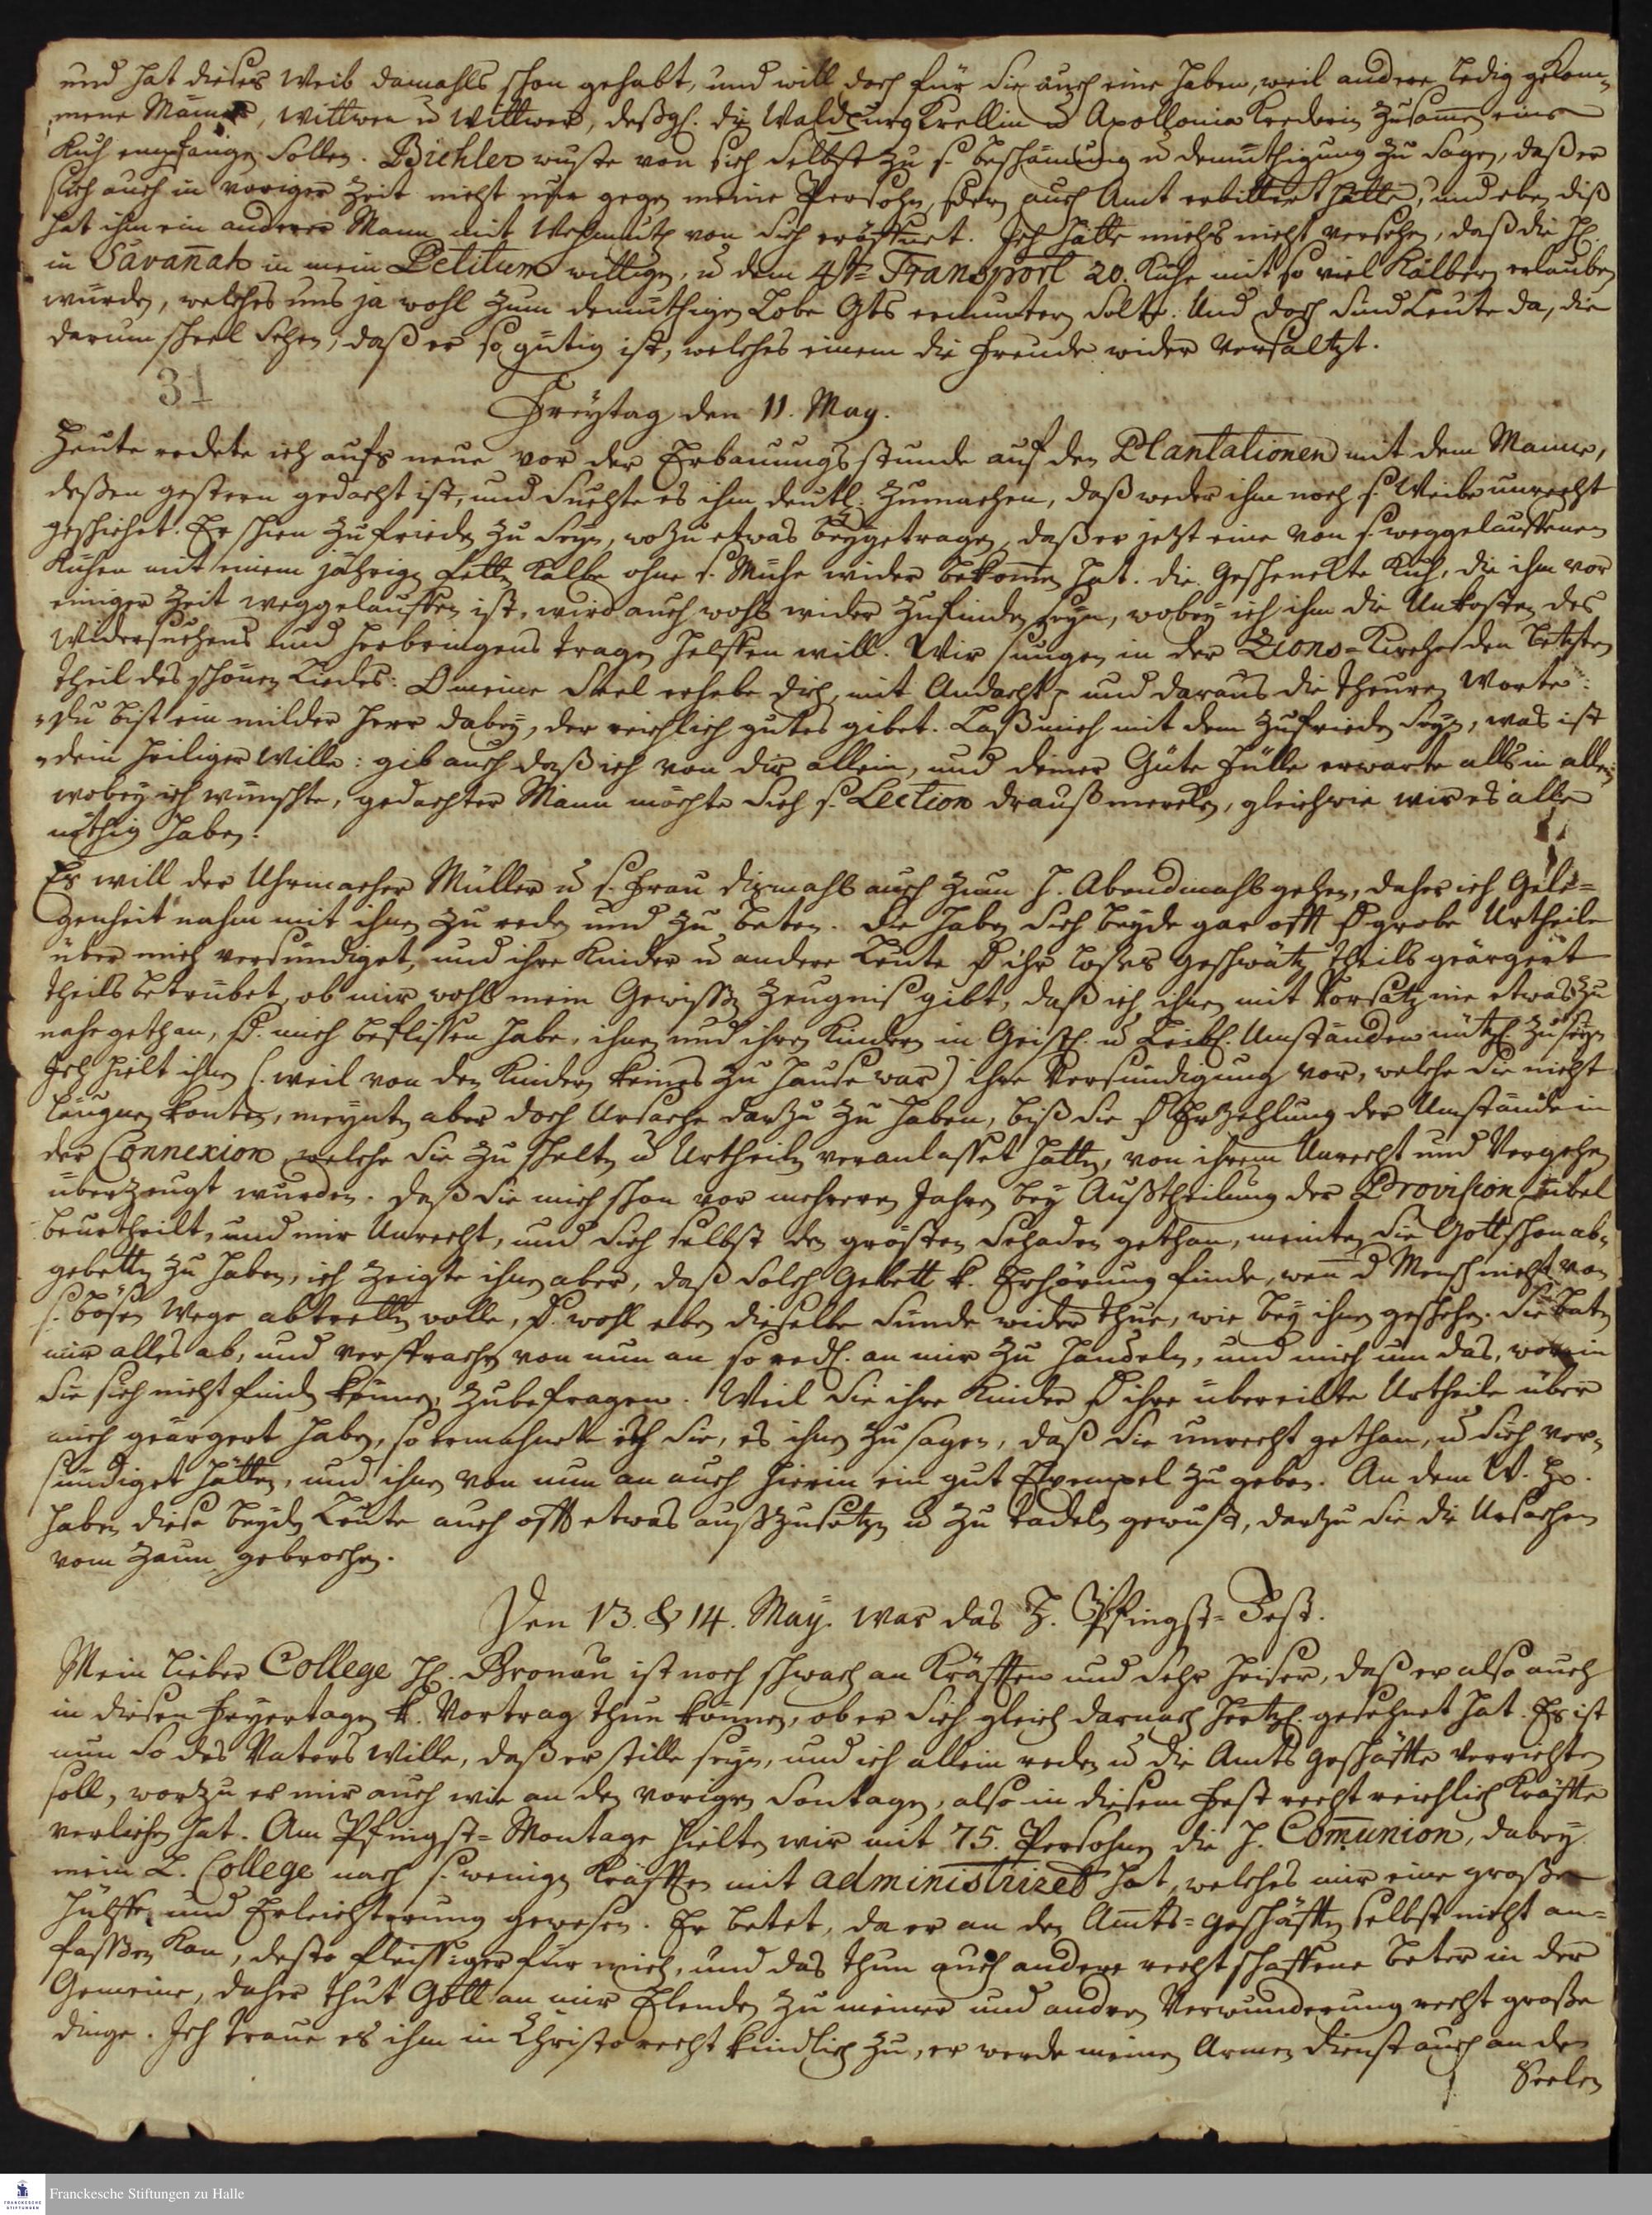 und hat dieses Weib damahls schon gehabt, und will doch für sie auch eine haben, weil andere ledig gekom-
mene Männer, Wittwen u Wittwer, deßgl. die Waldburg Krellin u Apollonia Krederin zusamen eine
Kuh empfangen sollen. Bichler wuste von sich selbst zu s. beschämung u demüthigung zu sagen, daß er
sich auch in voriger Zeit nicht nur gegen meine Persohn, sdern auch Amt erbittert hätte, und eben diß
hat ihm ein anderer Mann mit Wehmuth von sich eröffnet. Ich hätte michs nicht versehen, daß die H.
in Savañah in mein Petitum willigen, u dem 4t. Transport 20. Kühe mit so viel Kälbern erlauben
würden, welches uns ja wohl zum demüthigen Lobe Gts ermuntern solte. Und doch sind Leute da, die
darum scheel sehen, daß er so gütig ist, welches einem die Freude wider versaltzt.
31
Freytag den 11. May.
Heute redete ich aufs neue vor der Erbauungsstunde auf den Plantationen mit dem Manne,
deßen gestern gedacht ist, und suchte es ihm deutl. zumachen, daß weder ihm noch s. Weibe unrecht
geschiehet. Er schien zufrieden zu seyn, wozu etwas beygetragen, daß er jetzt eine von s. weggelauffenen
Kühen mit einem jährigen fetten Kalbe ohne s. Mühe wider bekomen hat. die geschenckte Kuh, die ihm vor
einiger Zeit weggelauffen ist, wird auch wohl wider zufinden seyn, wobey ich ihm die Unkosten des
Widersuchens und herbringens tragen helffen will. Wir sungen in der Zions-Kirche den letzten
theil des schönen Liedes: O meine Seel erhebe dich, mit Andacht p und daraus die theuren Worte:
„du bist ein milder Herr dabey, der reichlich gutes gibet. Laß mich mit dem zufrieden seyn, was ist
„dein heiliger Wille: gib auch daß ich von dir allein, und deiner Güte fülle erwarte alls in allen,
wobey ich wünschte, gedachter Mann möchte sich s. Lection drauß mercken, gleichwie wir es alle
nöthig haben.
Es will der Uhrmacher Müller u s. Frau dißmahls auch zum H. Abendmahl gehen, daher ich Gele=
genheit nahm mit ihnen zu reden und zu beten. Sie haben sich beyde gar offt d grobe Urtheile
über mich versündiget, und ihre Kinder u andere Leute d ihr loses geschwätz theils geärgert
theils betrübet, ob mir wohl mein Gewißen Zeugniß gibt, daß ich ihnen mit Vorsatz nie etwas zu
nahe gethan, s. mich beflissen habe, ihnen und ihren Kindern in Geistl. u Leibl. Umständen nützl. zu seyn.
Ich hielt ihnen (weil von den Kindern keines zu Hause war) ihre Versündigung vor, welche sie nicht
läugnen konten, meynten aber doch Ursache dartzu zu haben, biß sie d Erzehlung der Umstände in
der Connexion welche sie zu schelten u Urtheilen veranlasset hatten, von ihrem Unrecht und Vergehen
überzeugt wurden. daß sie mich schon vor mehreren Jahren bey Außtheilung der Provision übel
beurtheilt, und mir Unrecht, und sich selbst den größten Schaden gethan, meinten sie Gott schon ab-
gebetten zu haben, ich zeigte ihnen aber, daß solch Gebett k. Erhörung finde, wen d Mensch nicht von
s. bösen Wege abtretten wolle, s. wohl eben dieselbe Sünde wider thue, wie bey ihnen geschehen. Sie baten
mir alles ab, und versprachen von nun an so redl. an mir zu handeln, und mich um das, worin
sie sich nicht finden können, zubefragen. Weil sie ihre Kinder d ihre übereilte Urtheile über
mich geärgert haben, so ermahnete ich sie, es ihnen zu sagen, daß sie unrecht gethan, u sich ver-
sündiget hätten, und ihnen von nun an auch hierin ein gut Exempel zu geben. An dem W.
haben diese beyden Leute auch offt etwas außzusetzen u zu tadeln gewust, dartzu sie die Ursachen
vom Zaun gebrochen.
Den 13. & 14. May. war das H. Pfingst=Fest.
Mein lieber College H. Bronau ist noch schwach an Kräfften und sehr heiser, daß er also auch
in diesen Feyertagen k. Vortrag thun können, ob er sich gleich darnach hertzl. gesehnet hat. Es ist
nun so des Vaters Wille, daß er stille seyn, und ich allein reden u die Amts geschäffte verrichten
soll, wortzu er mir auch wie an den vorigen Sontagen, also in diesem Fest recht reichlich Kräffte
verliehen hat. Am Pfingst=Montage hielten wir mit 75. Persohnen die H. Comunion, dabey
mein L. College nach s. wenigen Kräfften mit administriret hat, welches mir eine große
Hülffe und Erleichterung gewesen. Er betet, da er an den Amts=geschäfften selbst nicht an=
faßen kan, desto fleissiger für mich, und das thun auch andere rechtschaffene beter in der
Gemeine, daher thut Gott an mir Elenden zu meiner und andern Verwunderung recht große
dinge. Ich traue es ihm in Christo recht kindlich zu, er werde meinen Armen dienst auch an den
Seelen
Franckesche Stiftungen zu Halle
FRANCKESCHE STIFTUNGEN